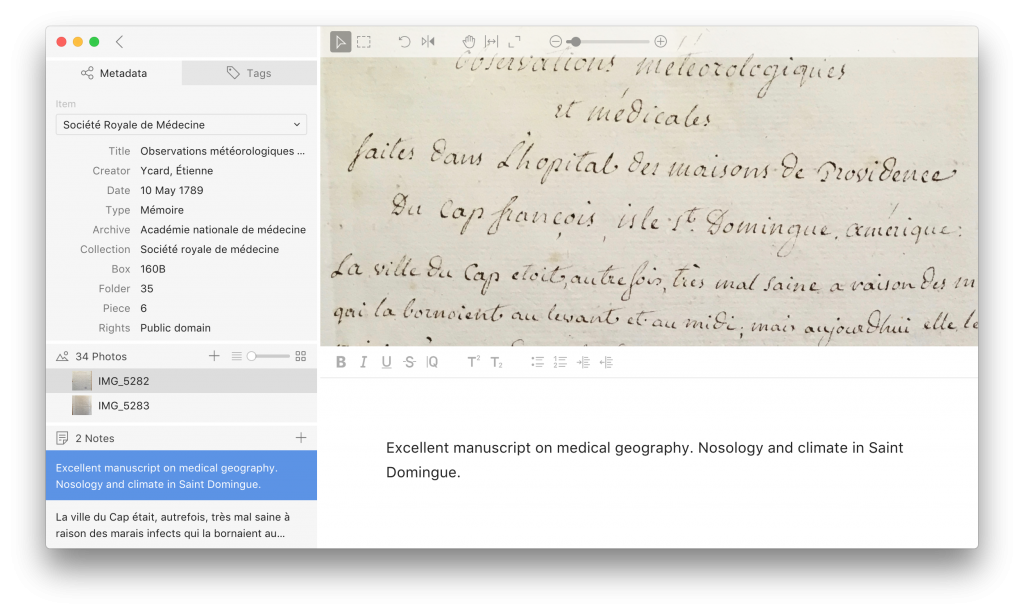 Metadata
Tags
Item
Société Royale de Médecine
Title Observations météorologiques ...
Creator Ycard, Étienne
Date 10 May 1789
Type Mémoire
Archive Académie nationale de médecine
Collection Société royale de médecine
Box 160B
Folder 35
Piece 6
Rights Public domain
34 Photos
IMG_5282
IMG_5283
2 Notes
Excellent manuscript on medical geography.
Nosology and climate in Saint Domingue.
La ville du Cap était, autrefois, très mal saine à
raison des marais infects qui la bornaient au...
Observations météorologiques
et médicales
faites dans L'hopital des maisons de Providence
Du Cap françois, isle St. Domingue, amérique:
La ville du Cap etoit, autrefois, très mal saine a raison des m
qui la bornoient au levant et au midi; mais aujourdhui elle
B I U S Q T² T₂
Excellent manuscript on medical geography. Nosology and climate in Saint
Domingue.